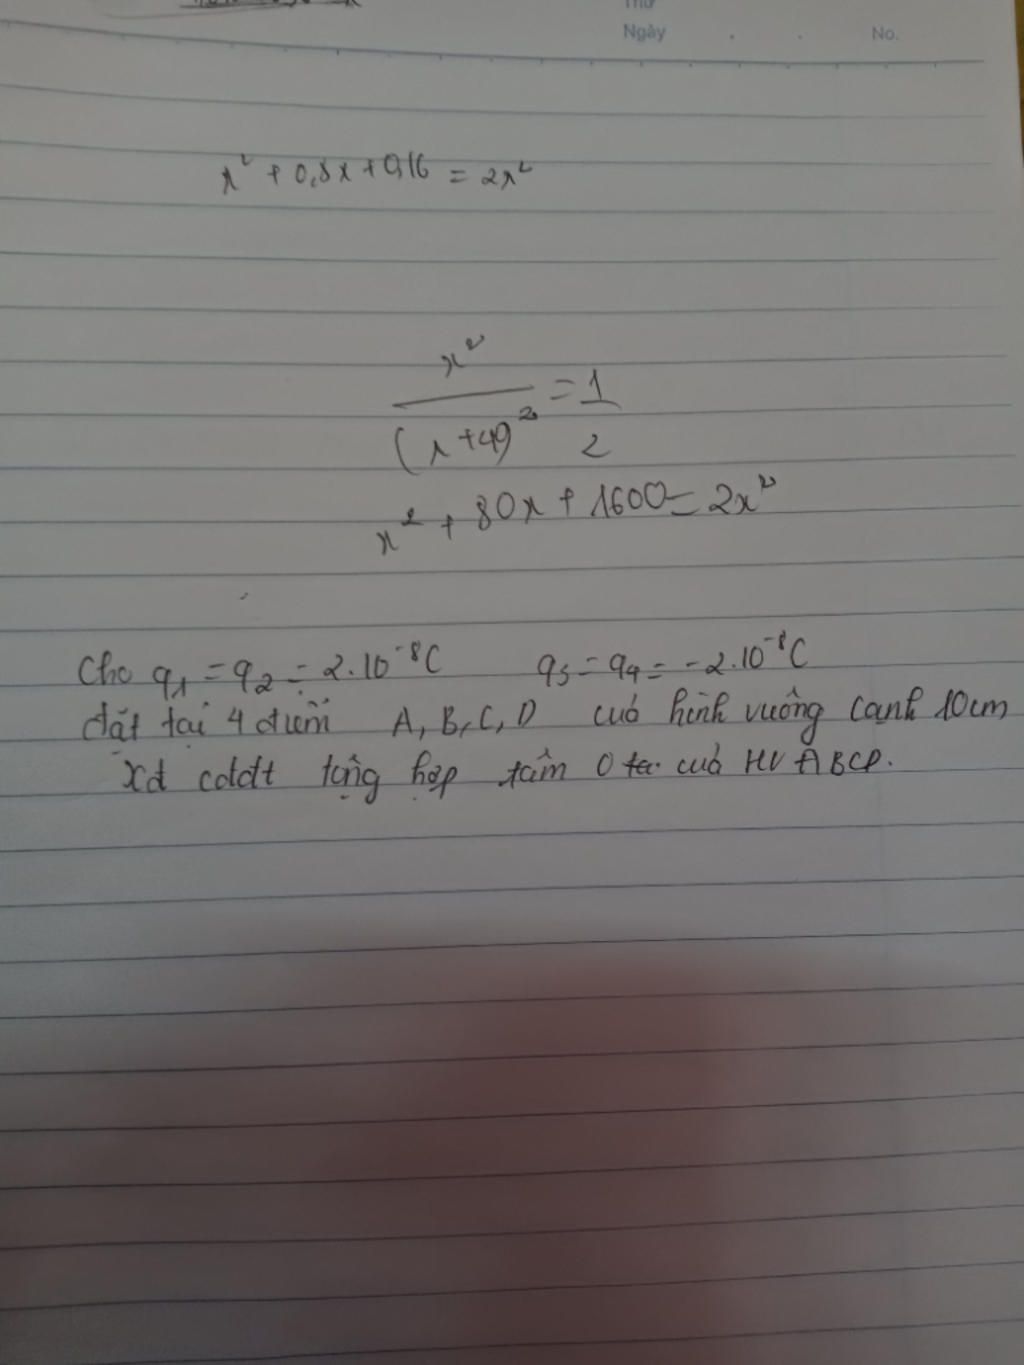 Thứ
Ngày . . No.
x² + 0,8x + 0,16 = 2x²
x² / (x+40)² = 1/2
x² + 80x + 1600 = 2x²
Cho q1 = q2 = 2.10⁻⁸C q3 = q4 = -2.10⁻⁸C
đặt tại 4 điểm A, B, C, D của hình vuông cạnh 10cm
Xđ cđđt tổng hợp tâm O của HV ABCD.